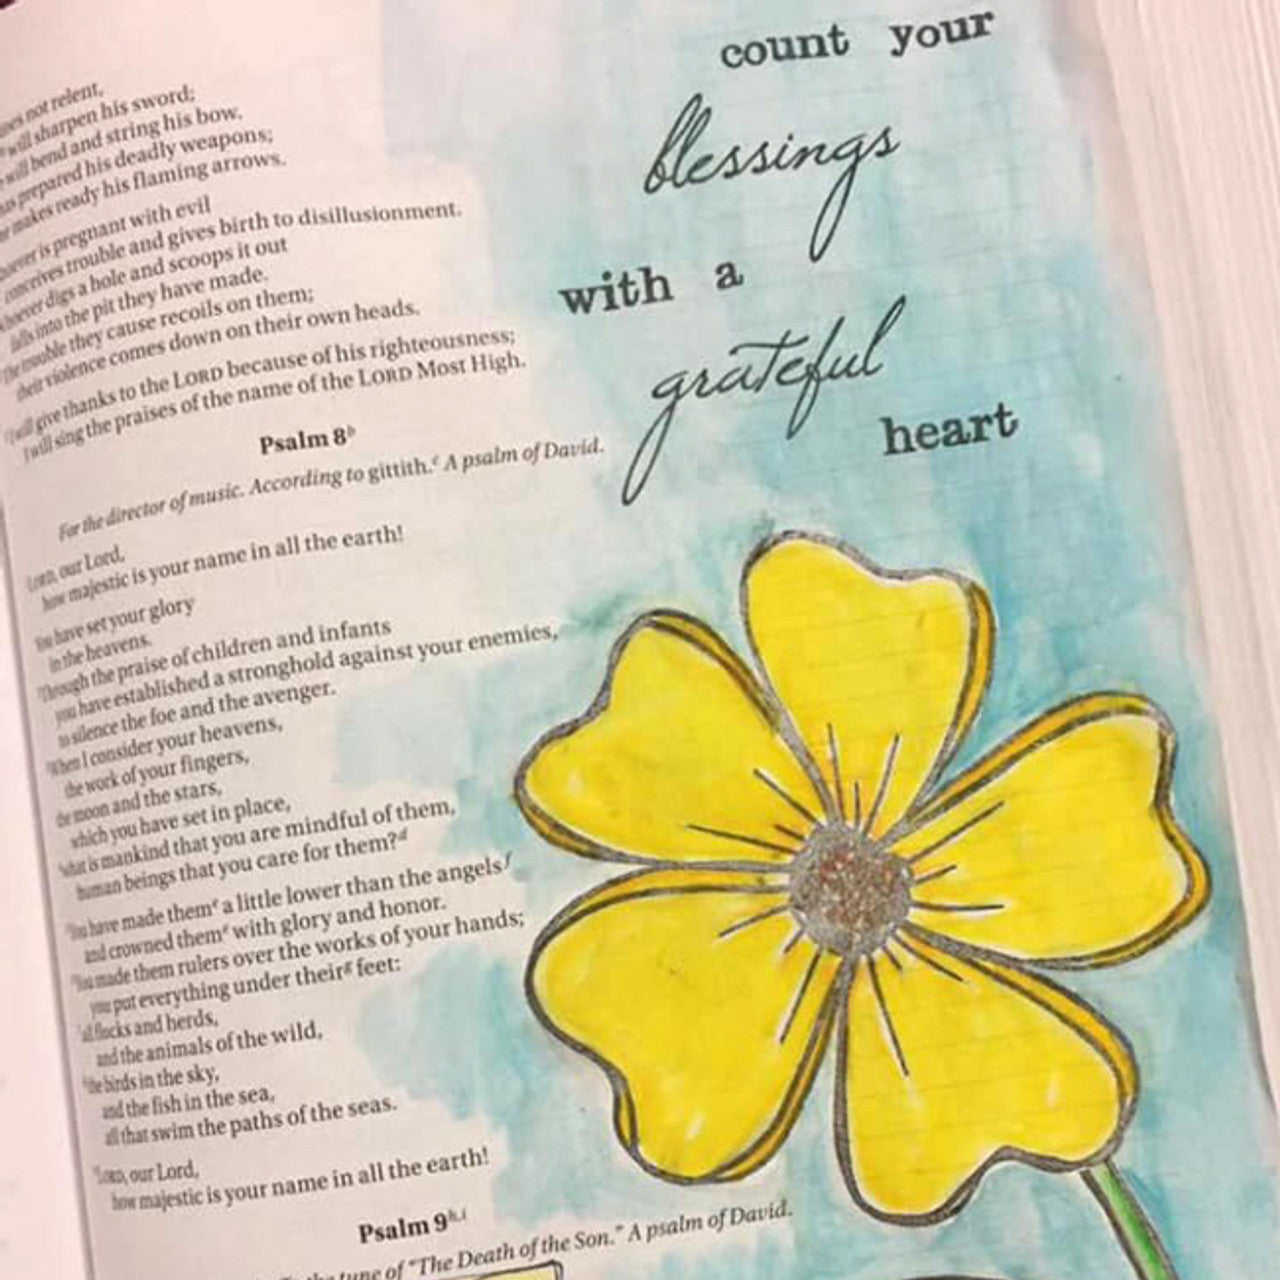 count your
blessings
with a
grateful
heart
not relent,
will sharpen his sword;
will bend and string his bow.
prepared his deadly weapons;
makes ready his flaming arrows.
is pregnant with evil
conceives trouble and gives birth to disillusionment.
digs a hole and scoops it out
falls into the pit they have made.
The trouble they cause recoils on them;
their violence comes down on their own heads.
I will give thanks to the LORD because of his righteousness;
I will sing the praises of the name of the LORD Most High.
Psalm 8ᵇ
For the director of music. According to gittith.ᶜ A psalm of David.
LORD, our Lord,
how majestic is your name in all the earth!
You have set your glory
in the heavens.
Through the praise of children and infants
you have established a stronghold against your enemies,
to silence the foe and the avenger.
When I consider your heavens,
the work of your fingers,
the moon and the stars,
which you have set in place,
what is mankind that you are mindful of them,
human beings that you care for them?ᵈ
You have made themᵉ a little lower than the angelsᶠ
and crowned themᵉ with glory and honor.
You made them rulers over the works of your hands;
you put everything under theirᵍ feet:
all flocks and herds,
and the animals of the wild,
the birds in the sky,
and the fish in the sea,
all that swim the paths of the seas.
LORD, our Lord,
how majestic is your name in all the earth!
Psalm 9ʰ,ⁱ
the tune of "The Death of the Son." A psalm of David.